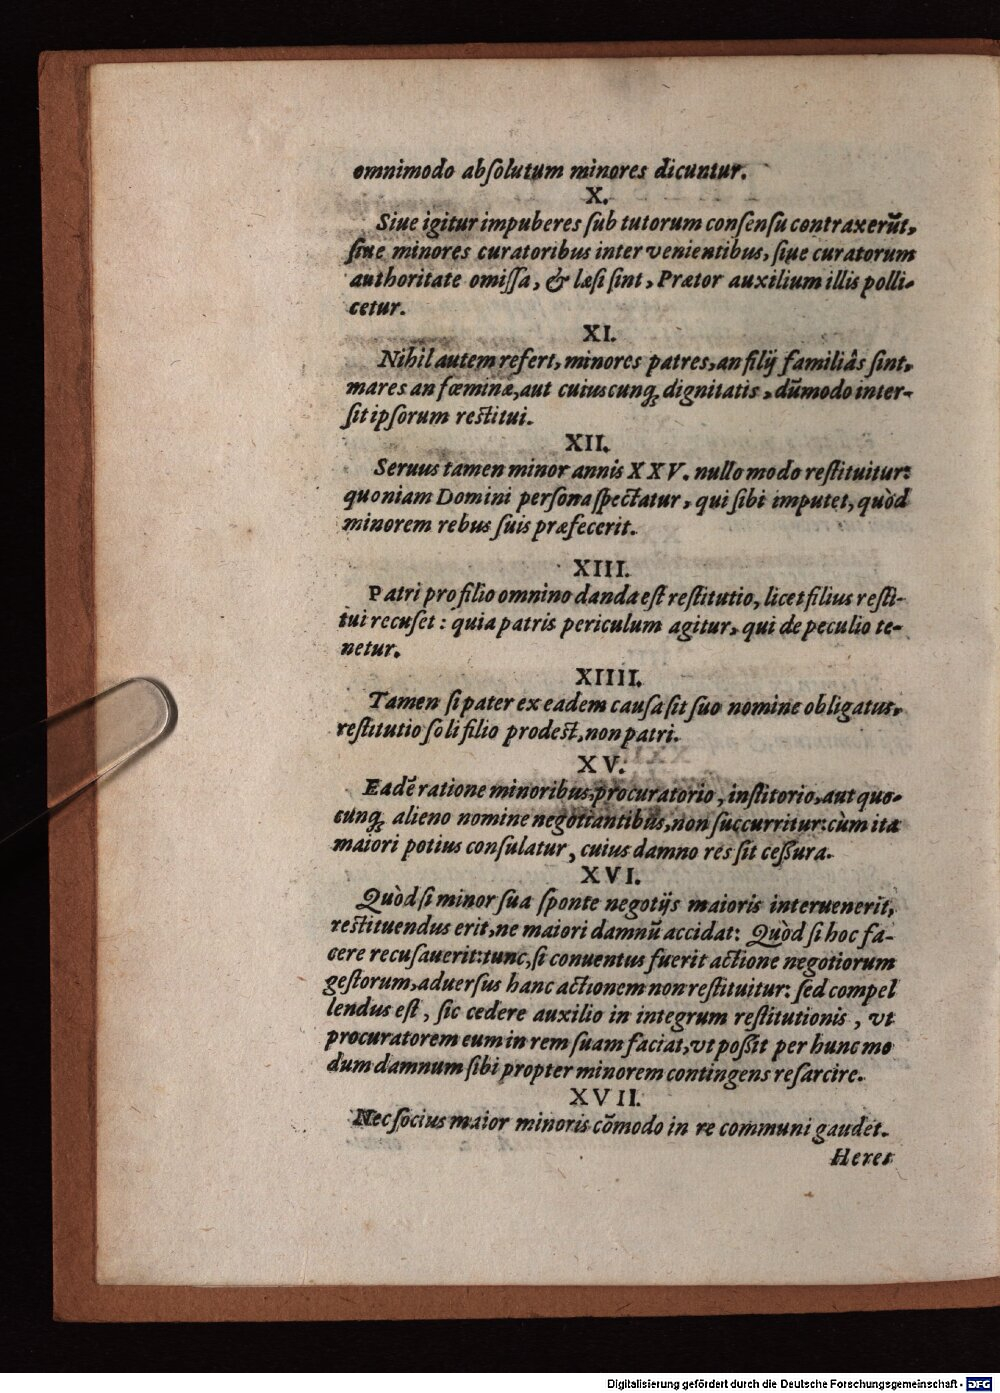 omnimodo abſolutum minores dicuntur.
X.
Siue igitur impuberes ſub tutorum conſenſu contraxerūt,
ſiue minores curatoribus intervenientibus, ſiue curatorum
authoritate omiſſa, & læſi ſint, Prætor auxilium illis polli-
cetur.
XI.
Nihil autem refert, minores patres, an filij familiâs ſint,
mares an fœminæ, aut cuiuscunq; dignitatis, dūmodo inter-
ſit ipſorum reſtitui.
XII.
Seruus tamen minor annis XXV. nullo modo reſtituitur:
quoniam Domini perſona ſpectatur, qui ſibi imputet, quòd
minorem rebus ſuis præfecerit.
XIII.
Patri pro filio omnino danda eſt reſtitutio, licet filius reſti-
tui recuſet: quia patris periculum agitur, qui de peculio te-
netur.
XIIII.
Tamen ſi pater ex eadem cauſa ſit ſuo nomine obligatus,
reſtitutio ſoli filio prodeſt, non patri.
XV.
Eadē ratione minoribus, procuratorio, inſtitorio, aut quo-
cunq; alieno nomine negotiantibus, non ſuccurritur: cùm ita
maiori potius conſulatur, cuius damno res ſit ceſſura.
XVI.
Quòd ſi minor ſua ſponte negotijs maioris interuenerit,
reſtituendus erit, ne maiori damnū accidat: Quòd ſi hoc fa-
cere recuſauerit: tunc, ſi conuentus fuerit actione negotiorum
geſtorum, aduerſus hanc actionem non reſtituitur: ſed compel
lendus eſt, ſic cedere auxilio in integrum reſtitutionis, vt
procuratorem eum in rem ſuam faciat, vt poſſit per hunc mo
dum damnum ſibi propter minorem contingens reſarcire.
XVII.
Nec ſocius maior minoris cōmodo in re communi gaudet.
Heres
Digitalisierung gefördert durch die Deutsche Forschungsgemeinschaft - DFG